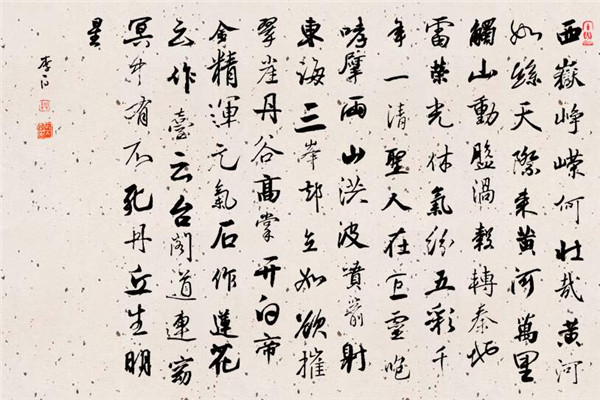 西嶽崢嶸何壯哉黃河
如絲天際來黃河萬里
觸山動盤渦轂轉秦地
雷榮光休氣紛五彩千
年一清聖人在巨靈咆
哮擘兩山洪波噴箭射
東海三峯卻立如欲摧
翠崖丹谷高掌開白帝
金精運元氣石作蓮花
云作臺云台閣道連窈
冥中有不死丹丘生明
星
李白